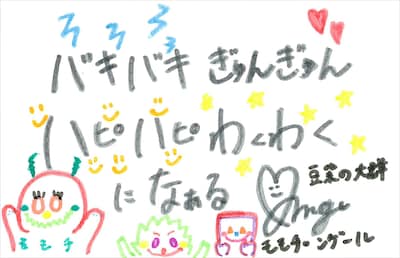 バキバキ ぎゅんぎゅん
ハピハピ わくわく
になぁる
豆菜の大群
モモチ
モモチーンゲール